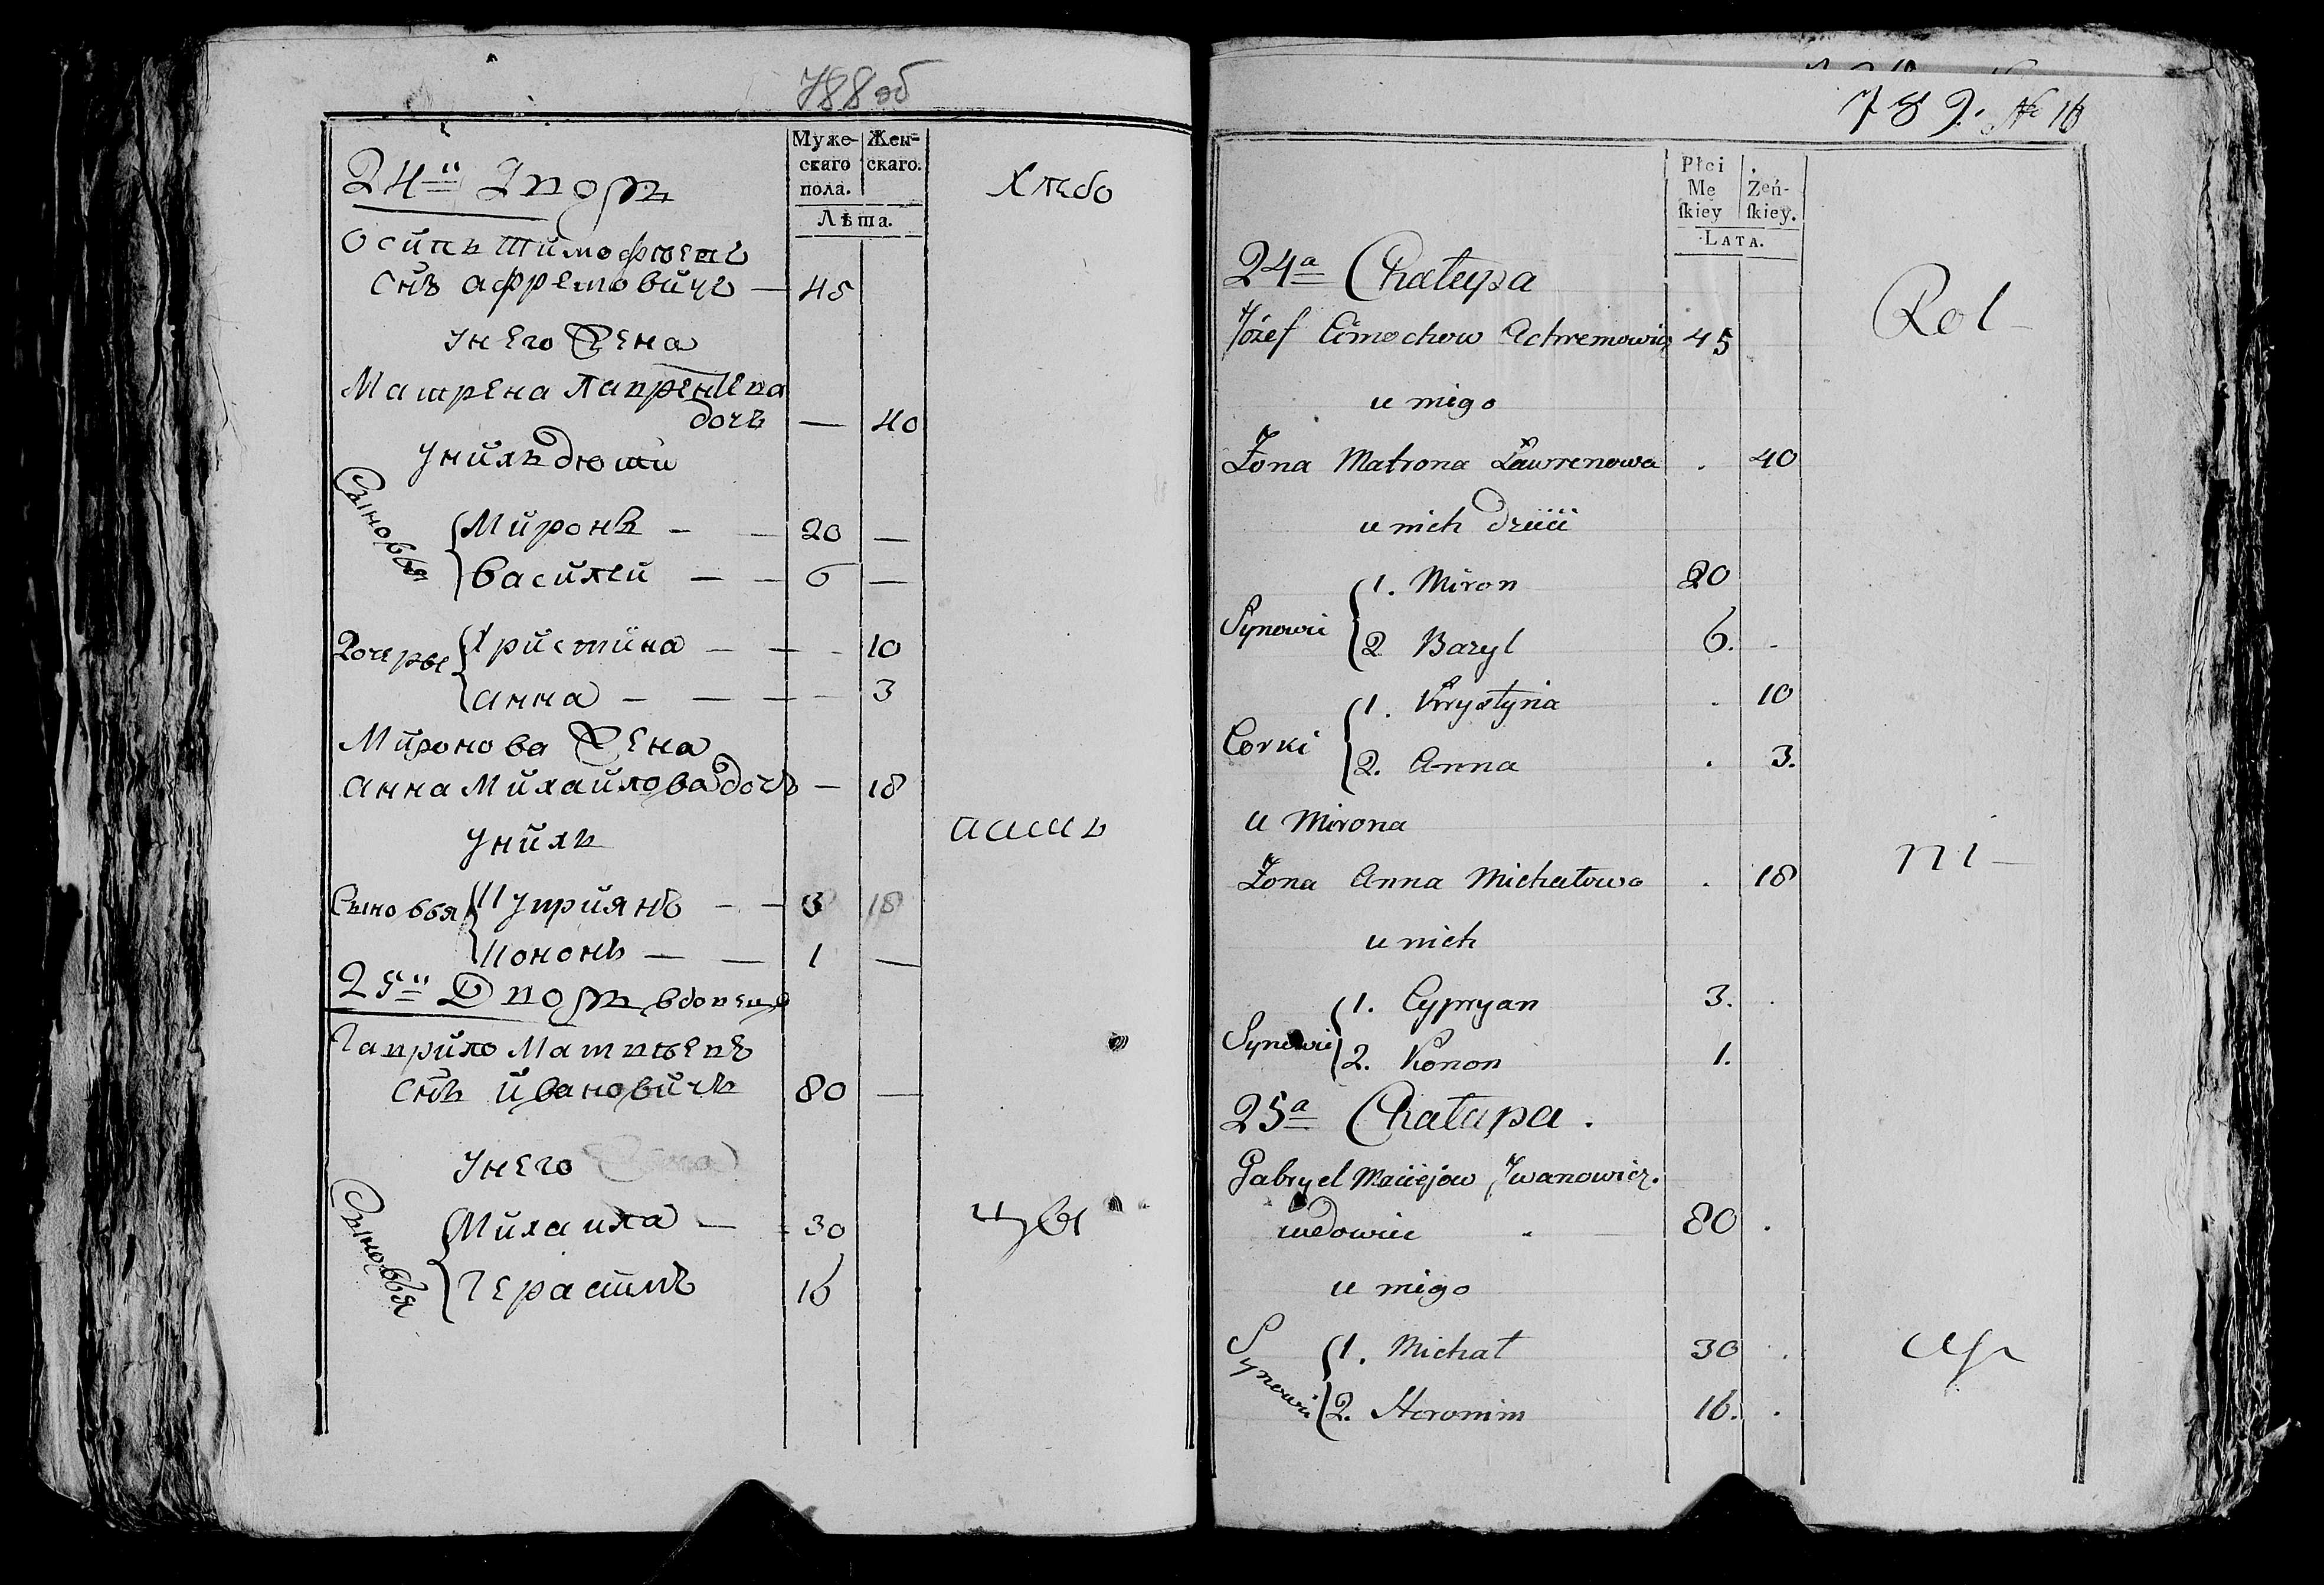 788 об
Муже-
скаго
пола.
Жен-
скаго.
Лѣта.
24й Дворъ
Хлебо
Осипъ Тимофѣевъ
Снъ Афремовичъ — 45
У него Жена
Матрена Лавренева
дочь — 40
У нихъ дѣти
Сыновья
Миронъ — — 20 —
Василей — — 6 —
Дочерье
Христина — — - 10
Анна — — — — 3
Миронова Жена
Анна Михайлова дочь — 18
У нихъ
пашь
Сыновья
Куприянъ — — 3 18
Кононъ — — 1 —
25й Дворъ вдовецъ
Гаврило Матвѣевъ
Снъ Ивановичъ 80 —
У него Жена
Сыновья
Михаила — 30
цы
Герасимъ 16
789. № 16
Płci
Mę
skiey
Żeń-
skiey.
LATA.
24a Chałupa
Rol-
Józef Cimochow Achremowicz 45
u niego
Żona Matrona Ławrenowa . 40
u nich dzieci
Synowie
1. Miron 20
2 Bazyl 6. -
Corki
1. Krystyna . 10
2. Anna . 3.
u Mirona
ni-
Żona Anna Michałowa . 18
u nich
Synowie
1. Cypryan 3. .
2. Konon 1.
25a Chałupa .
Gabryel Maciejow Iwanowicz.
wdowiec 80 .
u niego
Synowie
1. Michał 30 .
cy
2. Heronim 16. .